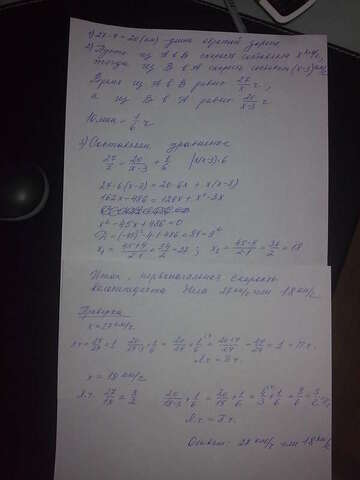 1) 27-7=20(км) - длина обратной дороги
2) Пусть из A в B скорость составляла x км/ч,
тогда из B в A скорость составила (x-3) км/ч
Время из A в B равно 27/x ч,
а из B в A равно 20/x-3 ч
10 мин = 1/6 ч
3) Составляем уравнение
27/x = 20/x-3 + 1/6 | x(x-3)·6
27·6(x-3) = 20·6x + x(x-3)
162x - 486 = 120x + x²-3x
x² - 45x + 486 = 0
D = (-45)² - 4·1·486 = 81 = 9²
x₁ = 45+9/2·1 = 54/2 = 27 ; x₂ = 45-9/2·1 = 36/2 = 18
Итак, первоначальная скорость
велосипедиста была 27 км/ч или 18 км/ч
Проверка
x = 27 км/ч
Л.ч = 27/27 = 1 = П.ч.
Л.ч = П.ч.
x = 18 км/ч
Л.ч. 27/18 = 3/2 20/18-3 + 1/6 = 20/15 + 1/6 = 4/3 + 1/6
Л.ч = П.ч.
Ответ: 27 км/ч или 18 км/ч